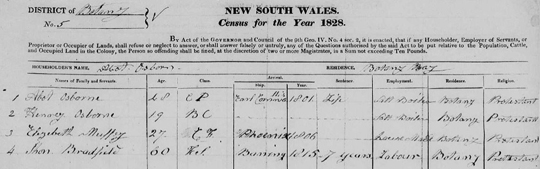 DISTRICT of Botany
No. 5
NEW SOUTH WALES.
Census for the Year 1828.
BY ACT of the GOVERNOR and Council of the 9th Geo. IV. No. 4 sec. 2, it is enacted, that if any Householder, Employer of Servants, or
Proprietor or Occupier of Lands, shall refuse or neglect to answer, or shall answer falsely or untruly, any of the Questions authorised by the said Act to be put relative to the Population, Cattle,
and Occupied Land in the Colony, the Person so offending shall be liable, at the discretion of two or more Magistrates, to a Sum not exceeding Ten Pounds.
HOUSEHOLDER'S NAME, Osborn RESIDENCE, Botany Bay
Names of Family and Servants. Age. Class. Arrival. Ship. Year. Sentence. Employment. Residence. Religion.
1 Osborne 48 CP 1801 Life Salt Boiler Botany Protestant
2 Henry Osborne 19 BC Salt Boiler Botany Protestant
3 Elizabeth 27 Phoenix Botany Protestant
4 Bradfield 60 1815 7 years Labour Botany Protestant